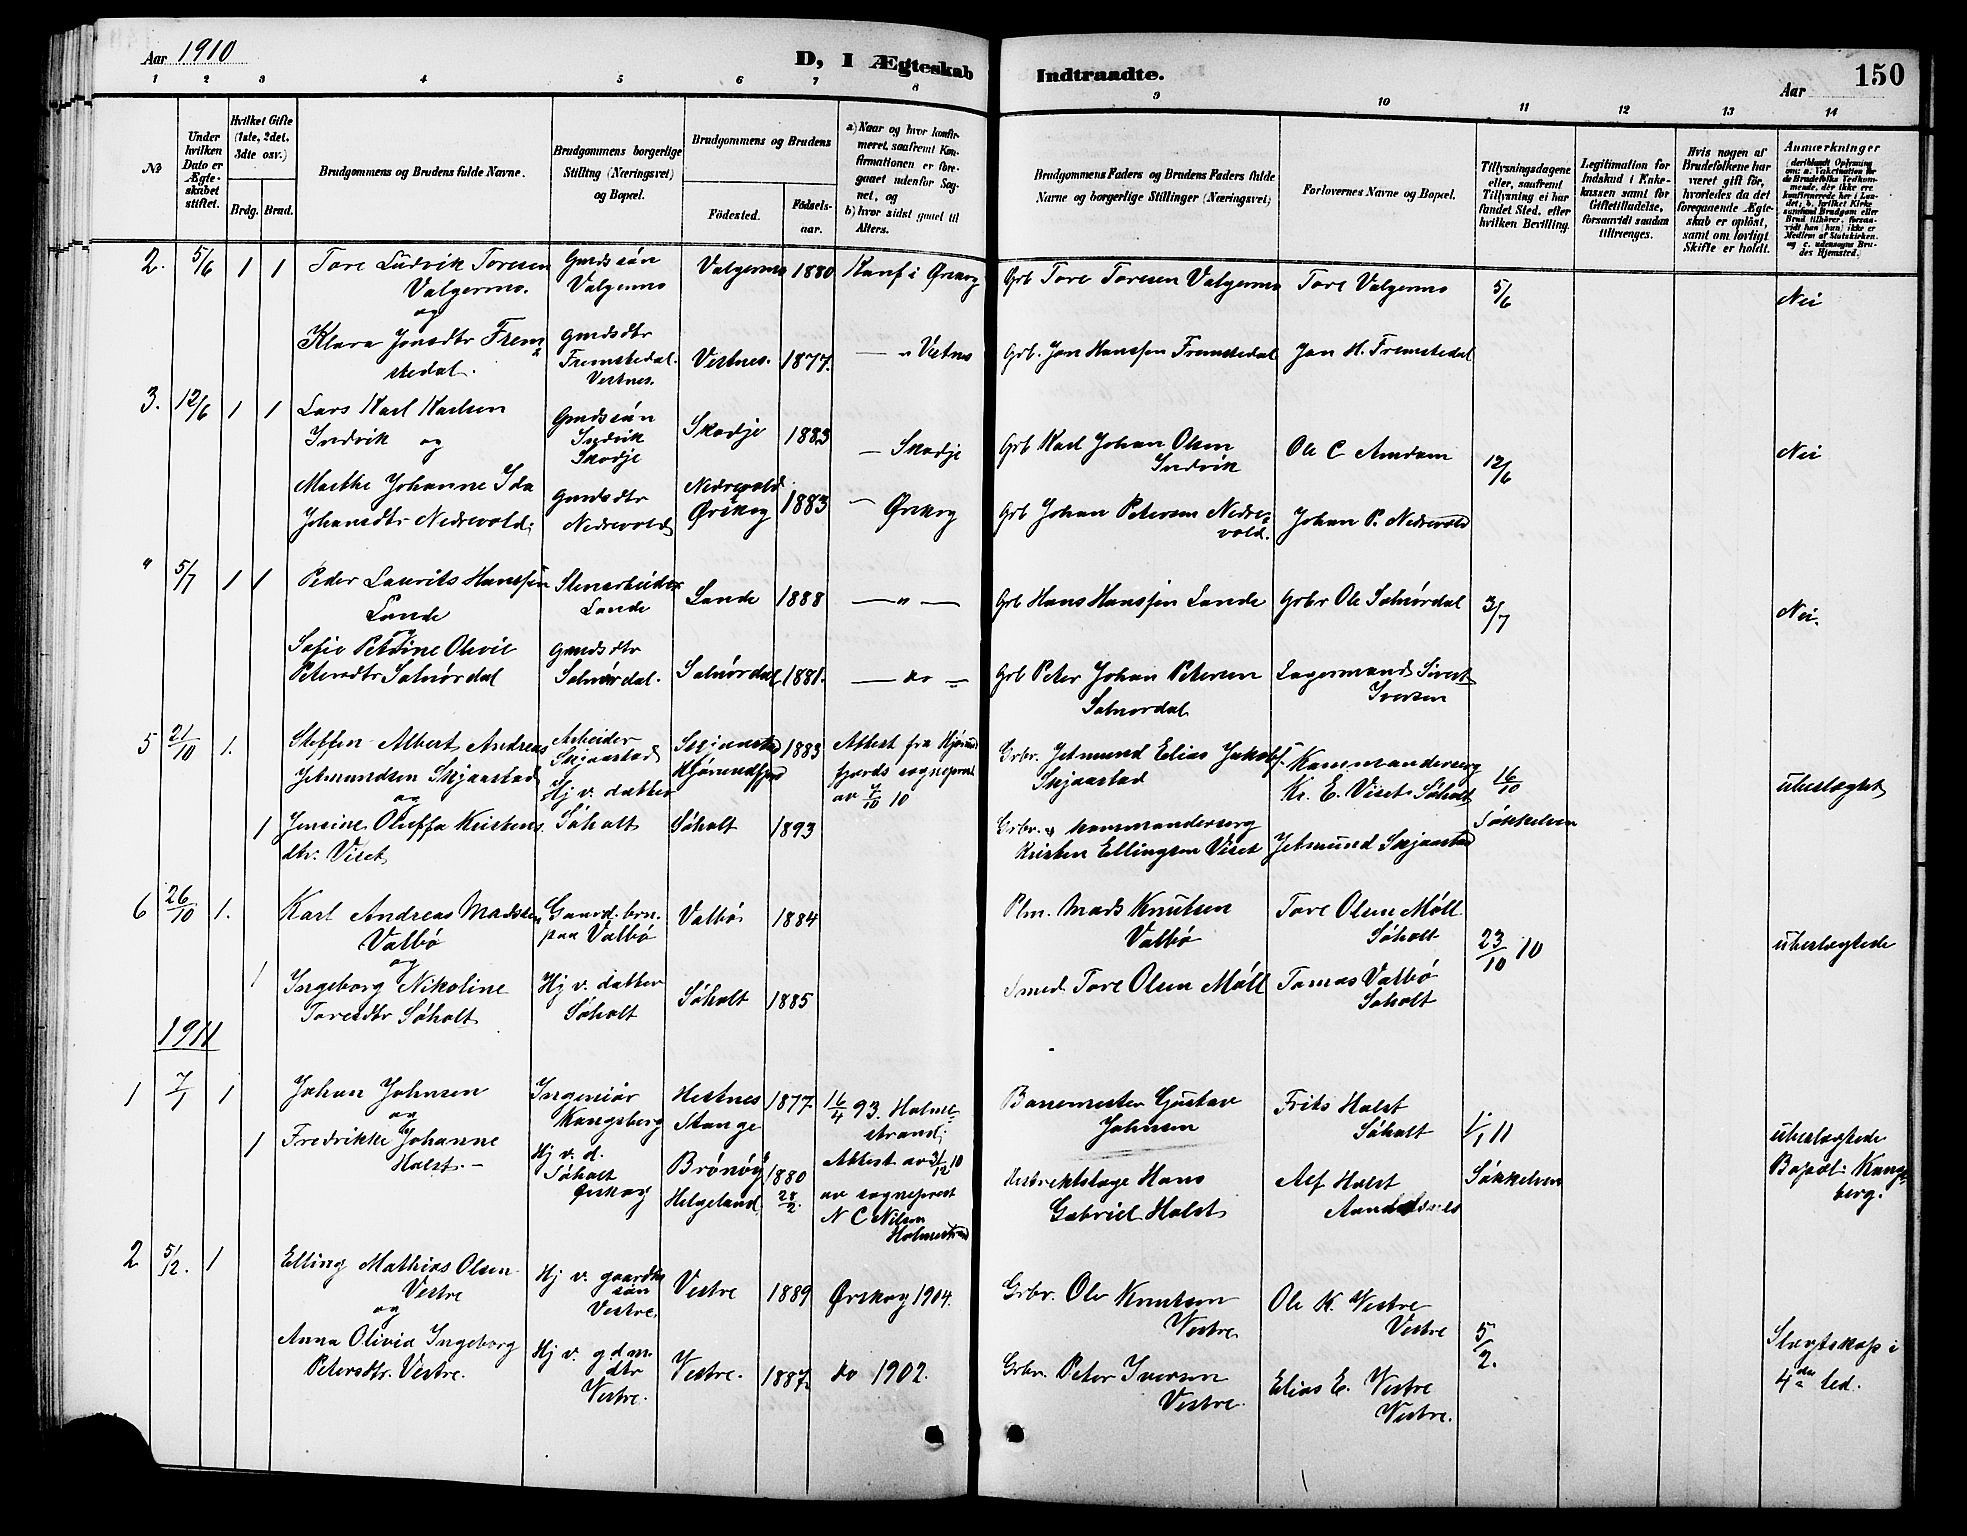 Aar 1910
D, I Ægteskab Indtraadte.
Aar
150
1 2 3 4 5 6 7 8 9 10 11 12 13 14
№
Under hvilken Dato er Ægteskabet stiftet.
Hvilket Gifte (1ste, 2det, 3dte osv.)
Brdg. Brud.
Brudgommens og Brudens fulde Navne.
Brudgommens borgerlige Stilling (Næringsvei) og Bopæl.
Brudgommens og Brudens
Fødested.
Fødselsaar.
a) Naar og hvor konfirmeret, saafremt Konfirmationen er foregaaet udenfor Sognet, og
b) hvor sidst gaaet til Alters.
Brudgommens Faders og Brudens Faders fulde Navne og borgerlige Stillinger (Næringsvei)
Forlovernes Navne og Bopæl.
Tillysningsdagene eller, saafremt Tillysning ei har fundet Sted, efter hvilken Bevilling.
Legitimation for Indskud i Enkekassen samt for Giftetilladelse, forsaavidt saadan tiltrænges.
Hvis nogen af Brudefolkene har været gift før, hvorledes da det foregaaende Ægteskab er opløst, samt om lovligt Skifte er holdt.
Anmerkninger
2. 5/6 1 1 Tore Ludvik Toresen Gmdssøn Valgermo 1880 Konf i Ørskog Grb Tore Toresen Valgermo Tore Valgermo 5/6 Nei
Valgermo. Valgermo
og
Klara Jonsdtr Frem= Gmdsdtr Vestnes. 1877. — " Vestnes Grb. Jon Hanssen Fremstedal Jon H. Fremstedal
stedal. Fremstedal.
Vestnes.
3. 12/6 1 1 Lars Karl Karlsen Gmdssøn Skodje 1883 — Skodje Grb Karl Johan Olsen Ole C Amdam 12/6 Nei
Indvik og Indvik Indvik
Skodje
Marthe Johanne Ida Gmdsdtr Nedrevold 1883 — Ørskog Grb Johan Petersen Nedre= Johan P. Nedrevold
Johansdtr Nedrevold. Nedrevold Ørskog vold.
" 5/7 1 1 Peder Laurits Hanssen Stenarbeider Lande 1888 — " — Grb Hans Hanssen Lande Grbr Ole Solnørdal 3/7 Nei.
Lande Lande
Sofie Petrine Olivie Gmdsdtr
Petersdtr Solnørdal Solnørdal. Solnørdal 1881. — do — Grb Peter Johan Petersen Lagermand Sivert
Solnørdal Iversen
5 21/10 1. Steffen Albert Andreas Arbeider 1883 Attest fra Hjørund Grbr. Jetmund Elias Jakobs.
Jetmundsen Skjaastad Skjaastad Hjørundfjord fjords sogneprest Skjaastad
og Hj v. datter av 7/10 10 Kr. E. Viset Søholt 16/10 ubeslægtet
1 Jensine Oluffa Kristens Søholt Søholt 1893 Grbr. Søkkelven
dtr. Viset Kristen Ellingsen Viset Jetmund Skjaastad
6 26/10 1. Karl Andreas Madsen Gaard.brn. Valbø 1884 Plm. Mads Knutsen Tore Olsen Møll
Valbø paa Valbø Valbø Søholt 23/10 10 ubeslegtede
og
1 Ingeborg Nikoline Hj v. datter Søholt 1885 Smed Tore Olsen Møll Tomas Valbø
Toresdtr Søholt Søholt Søholt
1911
1 7/1 1 Johan Johnsen Ingeniør Hestnes 1877 16/4 93. Holme= Banemester Gustav Frits Holst
og Kongsberg Stange strand; Johnsen Søholt 1/1 11 ubeslegtede
1 Fredrikke Johanne Hj v. d. Brønøy 1880 Attest av 31/12 10 distriktslæge Hans Alf Holst Søkkelven Bopæl: Kongs
Holst. — Søholt Helgeland 28/2. av sogneprest Gabriel Holst Aandalsnes berg.
Ørskog N C Nilsen
Holmestrand
2 5/12. 1 Elling Mathias Olsen Hj v. gaardm Vestre 1889 Ørskog 1904. Grbr. Ole Knutsen Ole K. Vestre
Vestre søn Vestre Vestre
og Vestre
Anna Olivia Ingeborg Hj v. gdm. Vestre. 1887. do 1902. Grbr. Peter Iversen Elias E. Vestre 5/2. Slægtskap i
Petersdtr. Vestre. dtr Vestre. Vestre. 4de led.
Vestre.